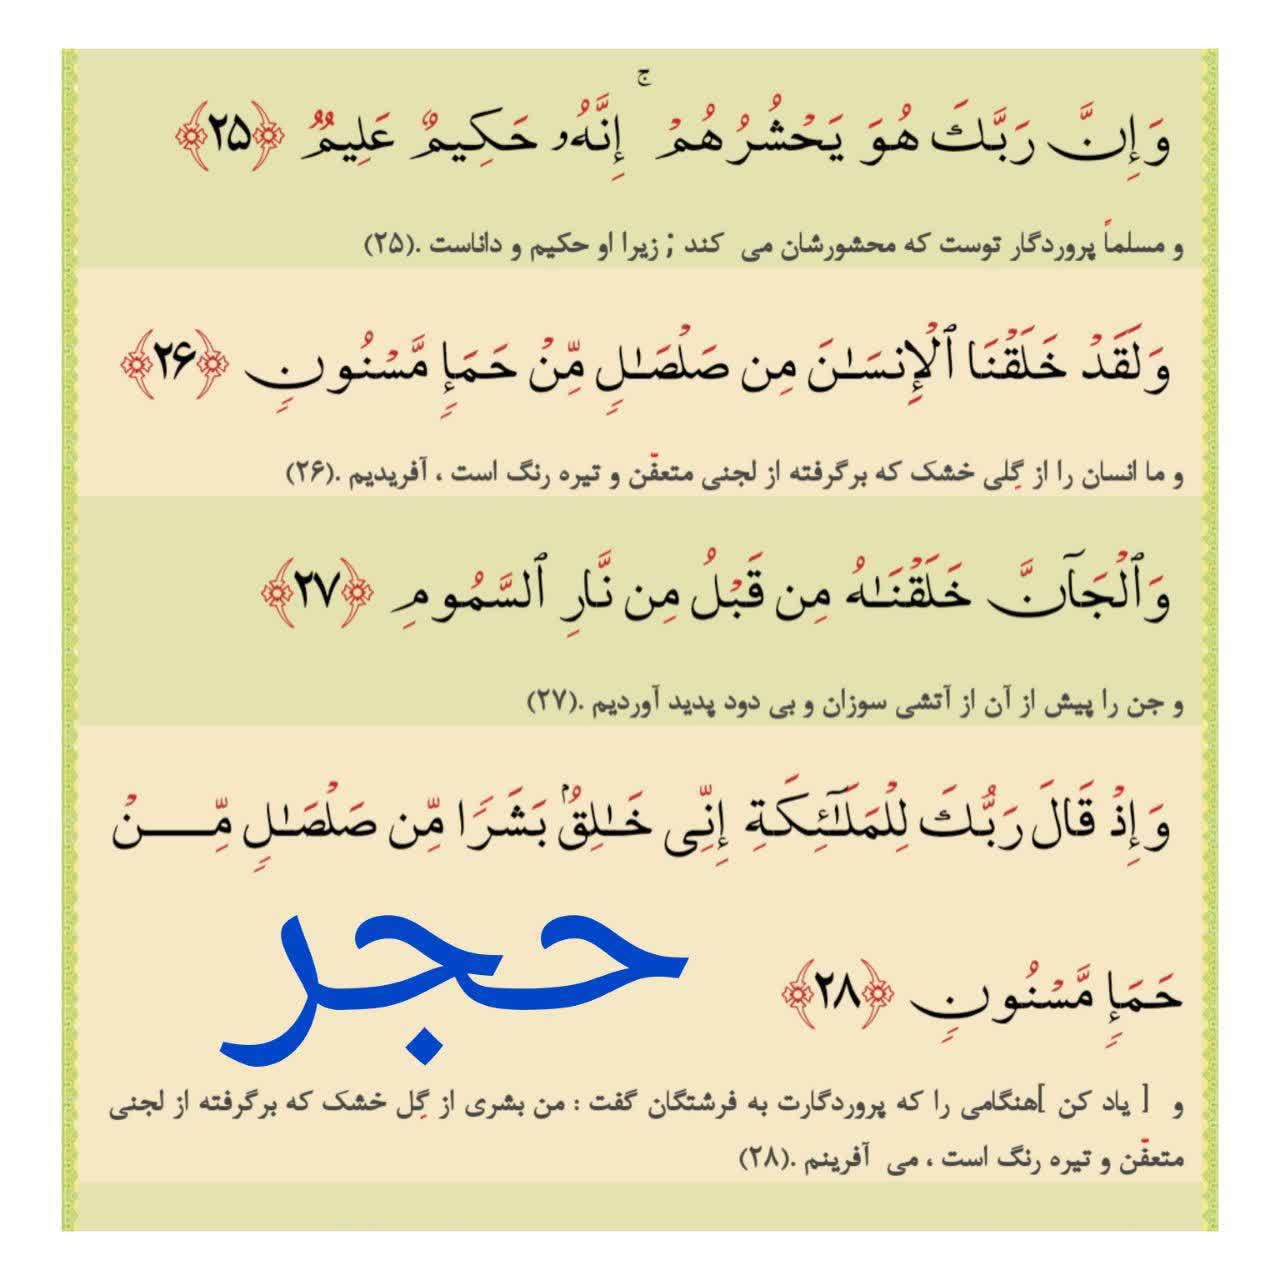 وَإِنَّ رَبَّكَ هُوَ يَحْشُرُهُمْ ۚ إِنَّهُۥ حَكِيمٌ عَلِيمٌ ﴿۲۵﴾
و مسلماً پروردگار توست که محشورشان می کند ; زیرا او حکیم و داناست .(۲۵)
وَلَقَدْ خَلَقْنَا ٱلْإِنسَـٰنَ مِن صَلْصَـٰلٍ مِّنْ حَمَإٍ مَّسْنُونٍ ﴿۲۶﴾
و ما انسان را از گِلی خشک که برگرفته از لجنی متعفّن و تیره رنگ است ، آفریدیم .(۲۶)
وَٱلْجَآنَّ خَلَقْنَـٰهُ مِن قَبْلُ مِن نَّارِ ٱلسَّمُومِ ﴿۲۷﴾
و جن را پیش از آن از آتشی سوزان و بی دود پدید آوردیم .(۲۷)
وَإِذْ قَالَ رَبُّكَ لِلْمَلَـٰٓئِكَةِ إِنِّى خَـٰلِقٌۢ بَشَرًا مِّن صَلْصَـٰلٍ مِّنْ
حَمَإٍ مَّسْنُونٍ ﴿۲۸﴾ حجر
و [ یاد کن ]هنگامی را که پروردگارت به فرشتگان گفت : من بشری از گِل خشک که برگرفته از لجنی
متعفّن و تیره رنگ است ، می آفرینم .(۲۸)